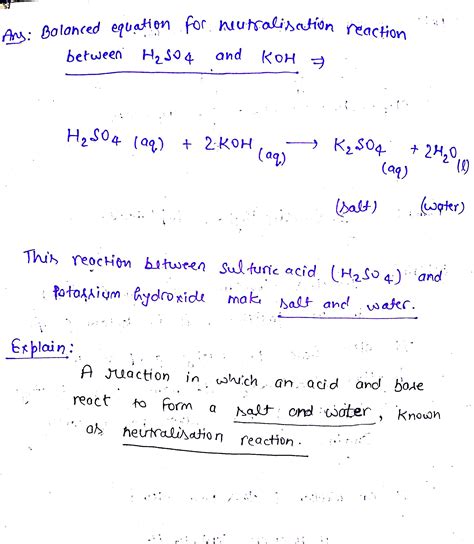 Ans: Balanced equation for neutralisation reaction
between H₂SO₄ and KOH ⇒
H₂SO₄ (aq) + 2KOH (aq) → K₂SO₄ (aq) + 2H₂O (l)
(salt) (water)
This reaction between sulfuric acid (H₂SO₄) and
potassium hydroxide make salt and water.
Explain:
A reaction in which an acid and base
react to form a salt and water, known
as neutralisation reaction.